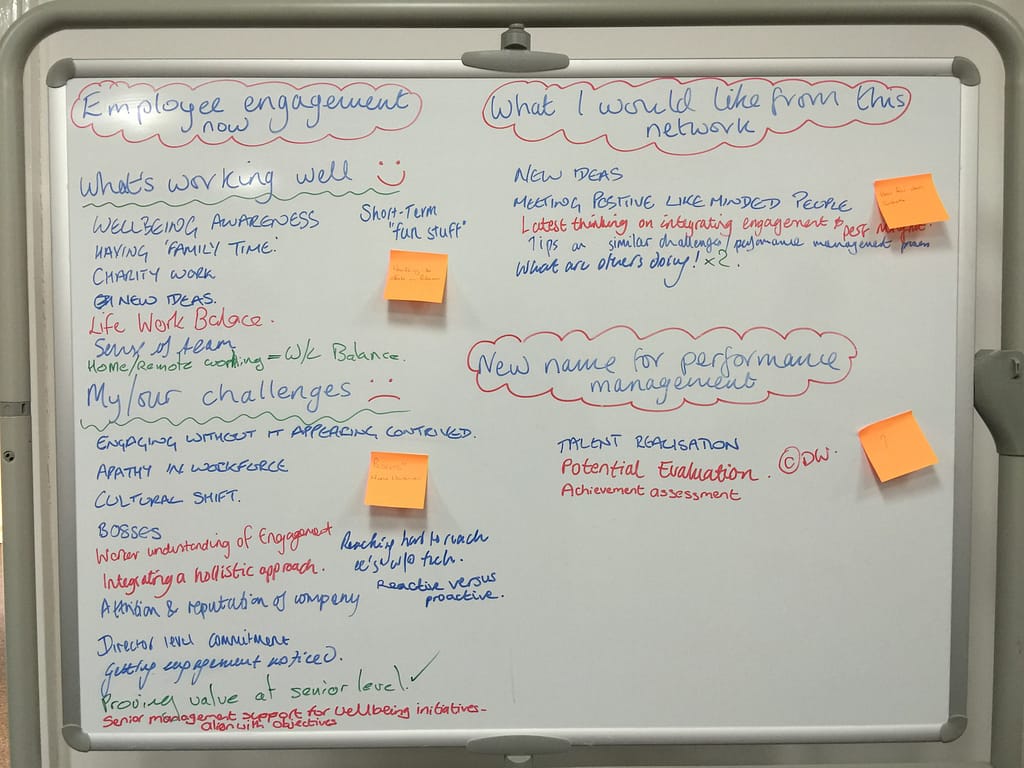 Employee engagement
now
What's working well
WELLBEING AWARENESS
HAVING 'FAMILY TIME.'
CHARITY WORK
NEW IDEAS.
Life Work Balace.
Sense of team
Home/Remote working = W/L Balance.
Short-Term
"fun stuff"
My/our challenges
ENGAGING WITHOUT IT APPEARING CONTRIVED.
APATHY IN WORKFORCE
CULTURAL SHIFT.
BOSSES
Worker understanding of Engagement
Integrating a hollistic approach.
Attrition & reputation of company
Reaching hard to reach
ee's w/o tech.
Reactive versus
proactive.
Director level commitment
Getting engagement noticed.
Proving value at senior level. ✓
Senior management support for wellbeing initiatives -
align with objectives
What I would like from this
network
NEW IDEAS
MEETING POSITIVE LIKE MINDED PEOPLE
Latest thinking on integrating engagement & perf mngmt.
Tips on similar challenges/performance management
What are others doing! x2.
New name for performance
management
TALENT REALISATION
Potential Evaluation. © DW.
Achievement assessment
?